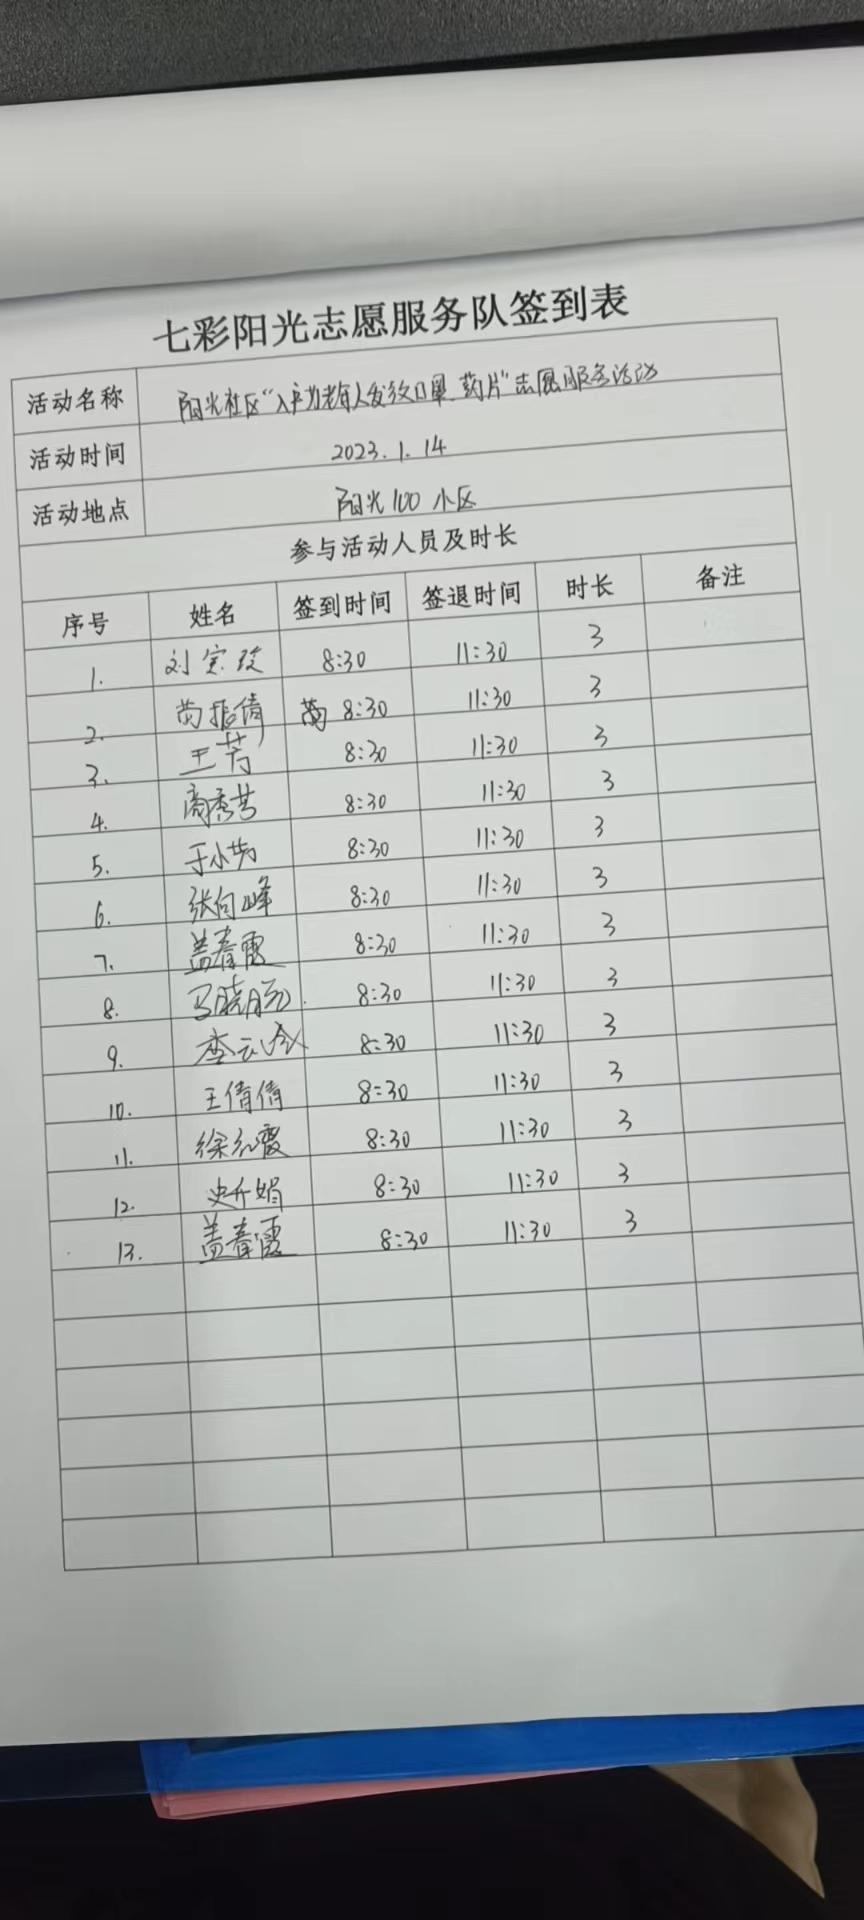 七彩阳光志愿服务队签到表
活动名称 阳光社区“入户为老年人发放口罩、药片”志愿服务活动
活动时间 2023.1.14
活动地点 阳光100小区
参与活动人员及时长
序号 姓名 签到时间 签退时间 时长 备注
1. 刘 8:30 11:30 3
2. 8:30 11:30 3
3. 王芳 8:30 11:30 3
4. 8:30 11:30 3
5. 于小 8:30 11:30 3
6. 张向峰 8:30 11:30 3
7. 盖春霞 8:30 11:30 3
8. 马晓 8:30 11:30 3
9. 李云 8:30 11:30 3
10. 王倩倩 8:30 11:30 3
11. 徐红霞 8:30 11:30 3
12. 史 娟 8:30 11:30 3
13. 盖春霞 8:30 11:30 3